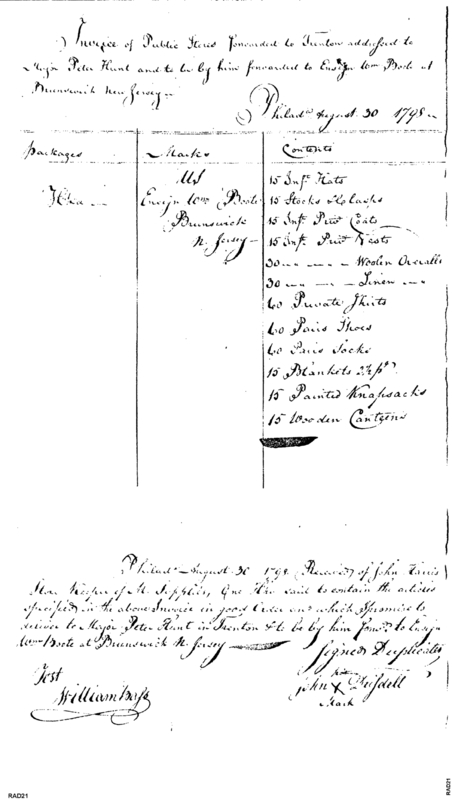 Invoice of Public Stores forwarded to Trenton addressed to
Major Peter Hunt and to be by him forwarded to Ensign Wm Boote at
Brunswick New Jersey
Philada August 30 1798
packages Marks Contents
US 15 Infy Hats
Ensign Wm Boote 15 Stocks & Clasps
Brunswick 15 Infy Priv Coats
N. Jersey 15 Infy Priv Vests
30 " " " Woolen Overalls
30 " " " Linen "
60 Private Shirts
60 Pairs Shoes
60 Pairs Socks
15 Blankets 2½ pt
15 Painted Knapsacks
15 Wooden Canteens
Philada August 30 1798 Received of John Harris
Store Keeper of M. Supplies, One said to contain the articles
specified in the above Invoice in good Order and which I promise to
deliver to Major Peter Hunt in Trenton & to be by him forwd to Ensign
Wm Boote at Brunswick N. Jersey
Signed Duplicates
Test
William
his
John X
Mark
RAD21
RAD21